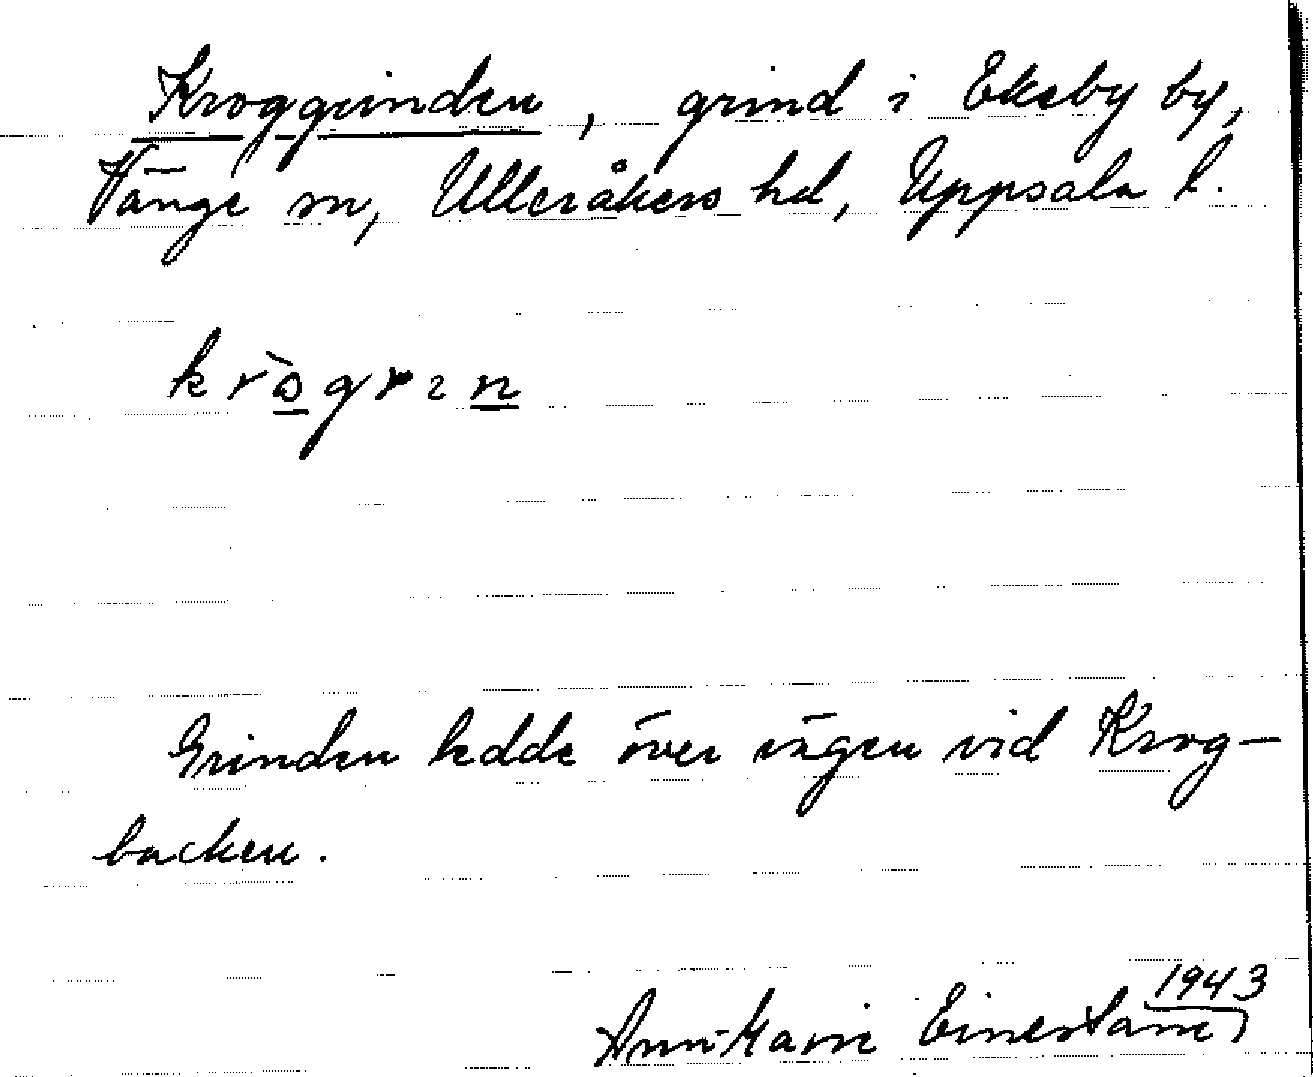 Kroggrinden, grind i Ekeby by,
Vänge sn, Ulleråkers hd, Uppsala l.
Grinden ledde över vägen vid Krog-
backen.
1943
Ann-Marie